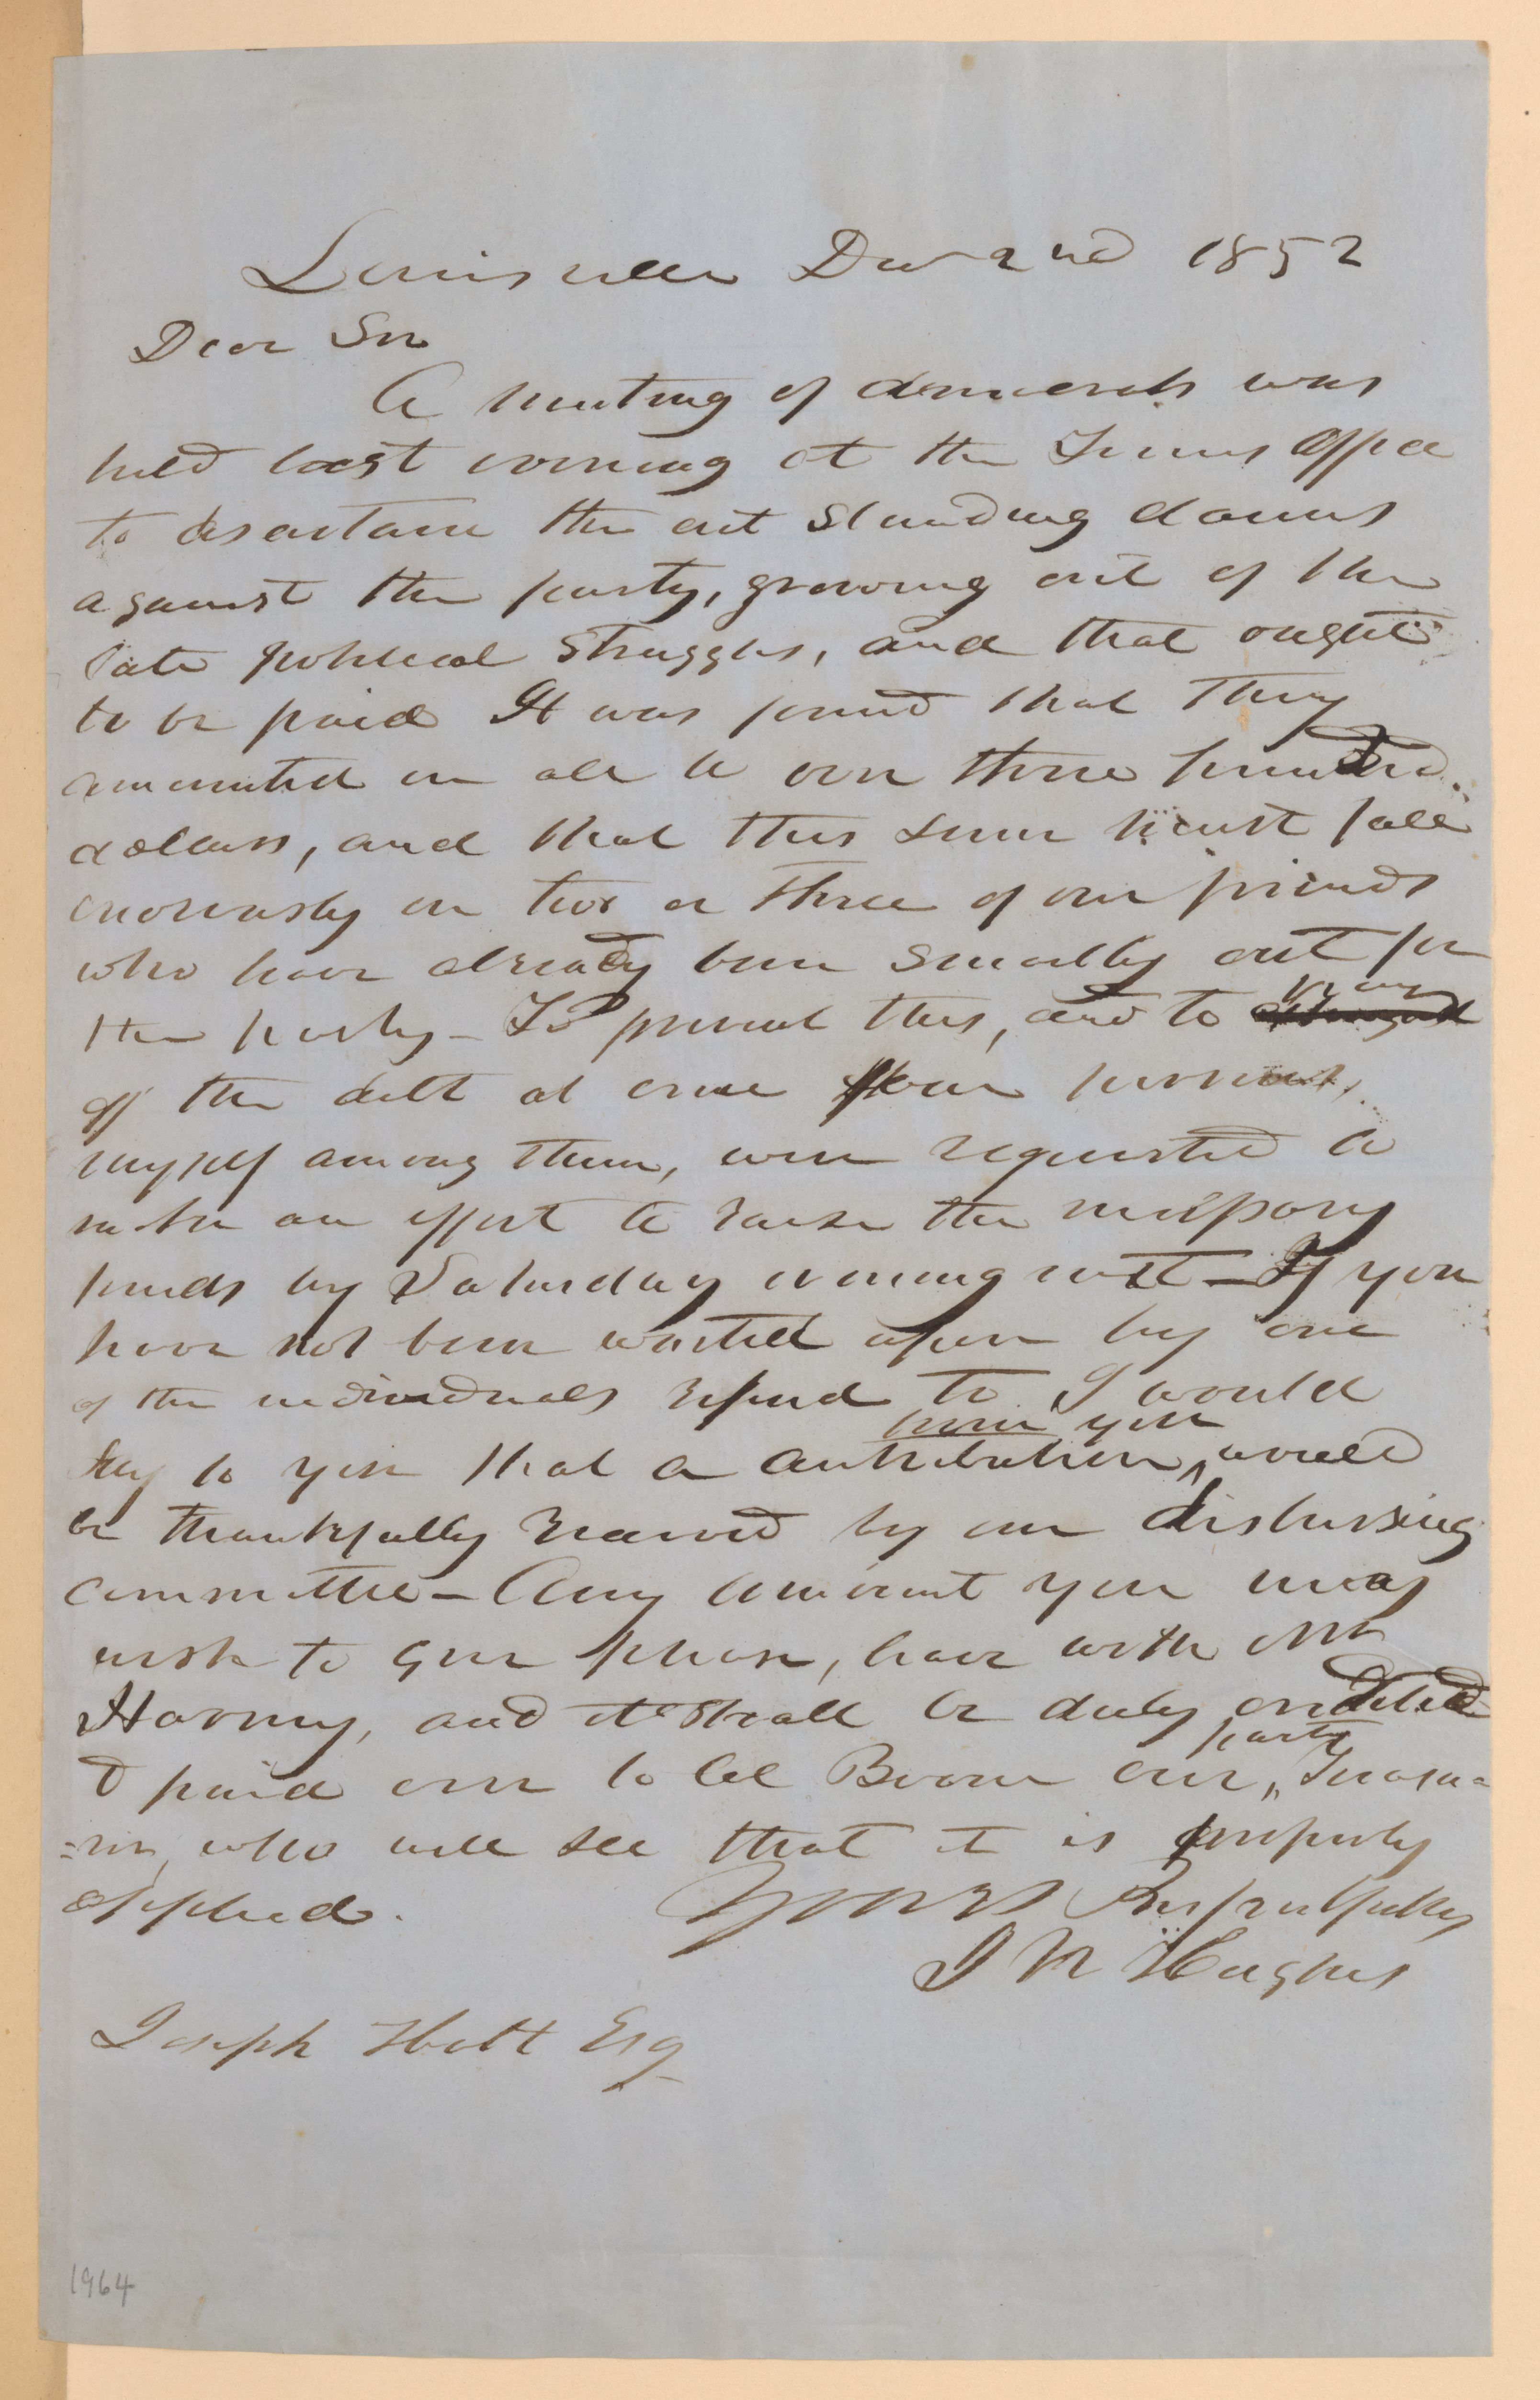 Louisville Dec 2nd 1852
Dear Sir
A meeting of democrats was
held last evening at the Times office
to asertain the out standing claims
against the party, growing out of the
late political struggles, and that ought
to be paid It was found that they
amounted in all to over three hundred
dollars, and that this sum must fall
onerously on two or three of our friends
who have already been smartly out for
the party – To prevent this, and to pay
off the debt at once four persons,
myself among them, were requested to
make an effort to raise the necessary
funds by Saturday evening next – If you
have not been waited upon by one
of the individuals refered to I would
say to you that a contribution from you would
be thankfully received by our disbursing
committee – Any amount you may
wish to give please, leave with Mr
Harney, and it shall be duly credited
& paid over to Col Boone our party Treasu=
=rer, who will see that it is properly
applied.
Yours Respectfully
J N Hughes
Joseph Holt Esq
1964